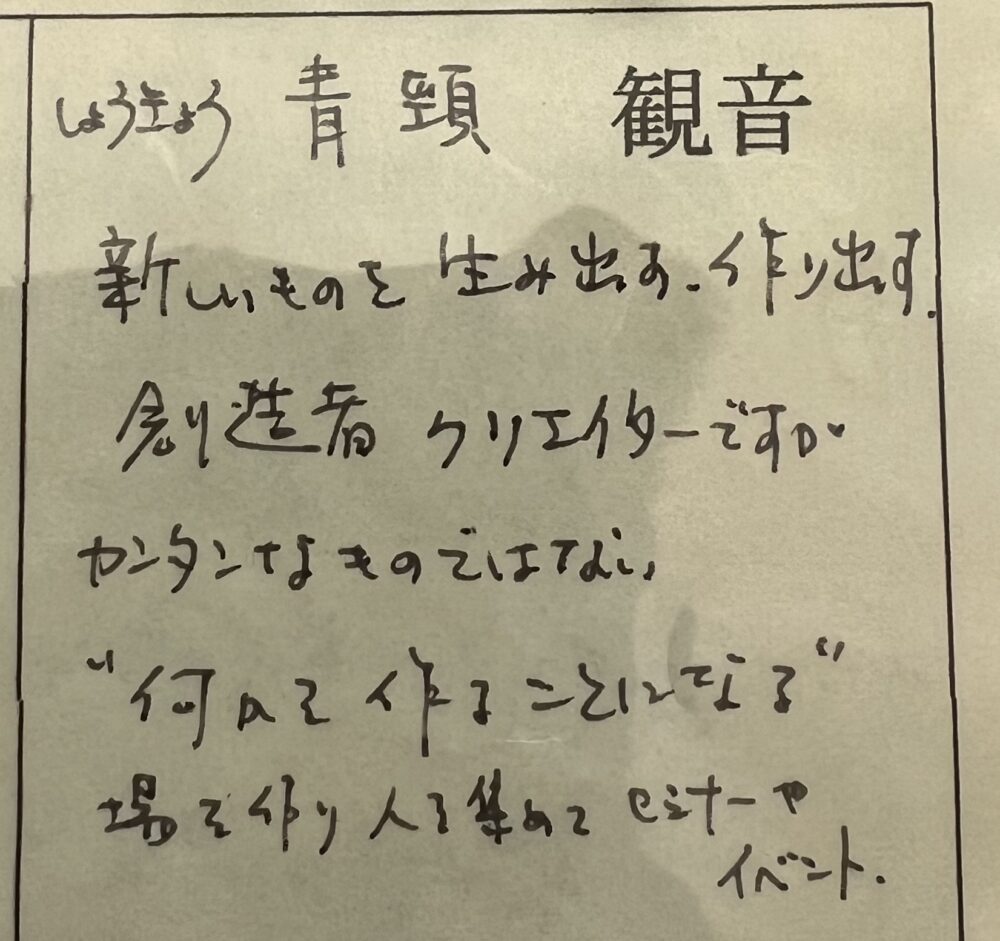 しょうきょう 青頸 観音
新しいものを生み出す.作り出す.
創造者 クリエイターですが
カンタンなものではない
“何かを作ることになる”
場を作り人を集めて セミナーや
イベント.